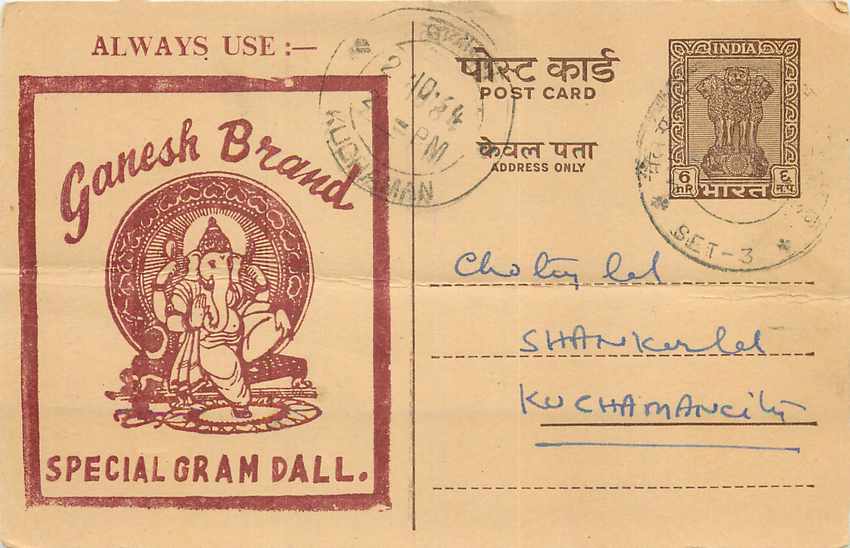 ALWAYS USE :—
Ganesh Brand
SPECIAL GRAM DALL.
2 10.64
PM
KUCHAMAN
पोस्ट कार्ड
POST CARD
केवल पता
ADDRESS ONLY
INDIA
6 nP
भारत
६ न.पै.
SET-3
Shankerlal
KUCHAMANCity